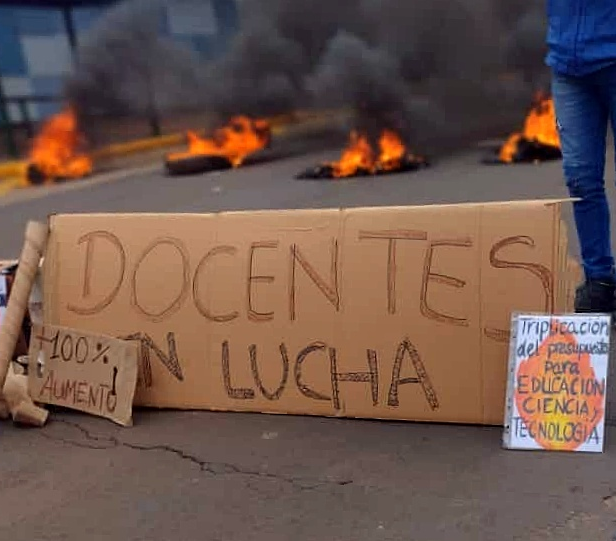 DOCENTES
EN LUCHA
+100%
AUMENTO!
Triplicación
del presupuesto
para
EDUCACIÓN
CIENCIA y
TECNOLOGIA